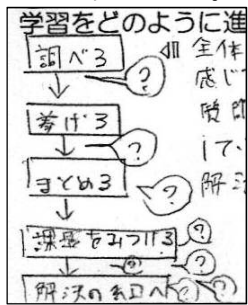 学習をどのように進
調べる
全体
感じ
?
挙げる
質問
?
して、
まとめる
?
解決
課題をみつける
?
?
?
解決の糸口へ
?
?